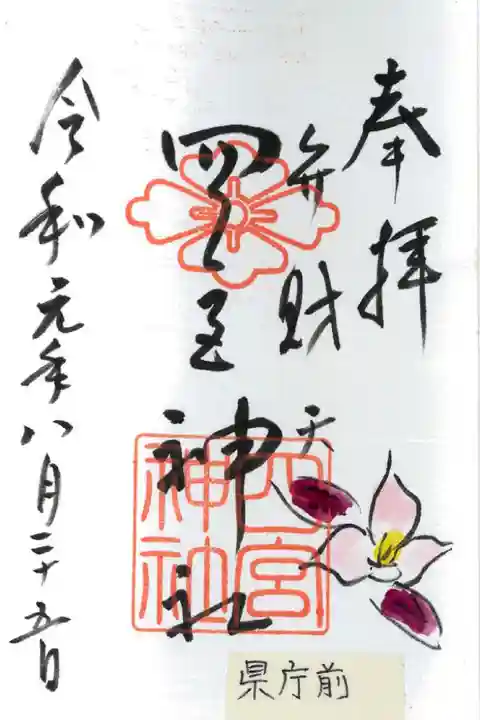 奉拝
弁財天
四之宮神社
四宮神社
令和元年八月二十五日
県庁前